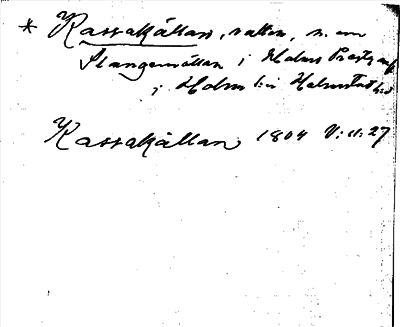 * Kassakällan, vatten, n. om
Stangamöllan i Holms Prästg.
i Holm s:n Halmstad h:d
Kassakällan 1804 V:11:27